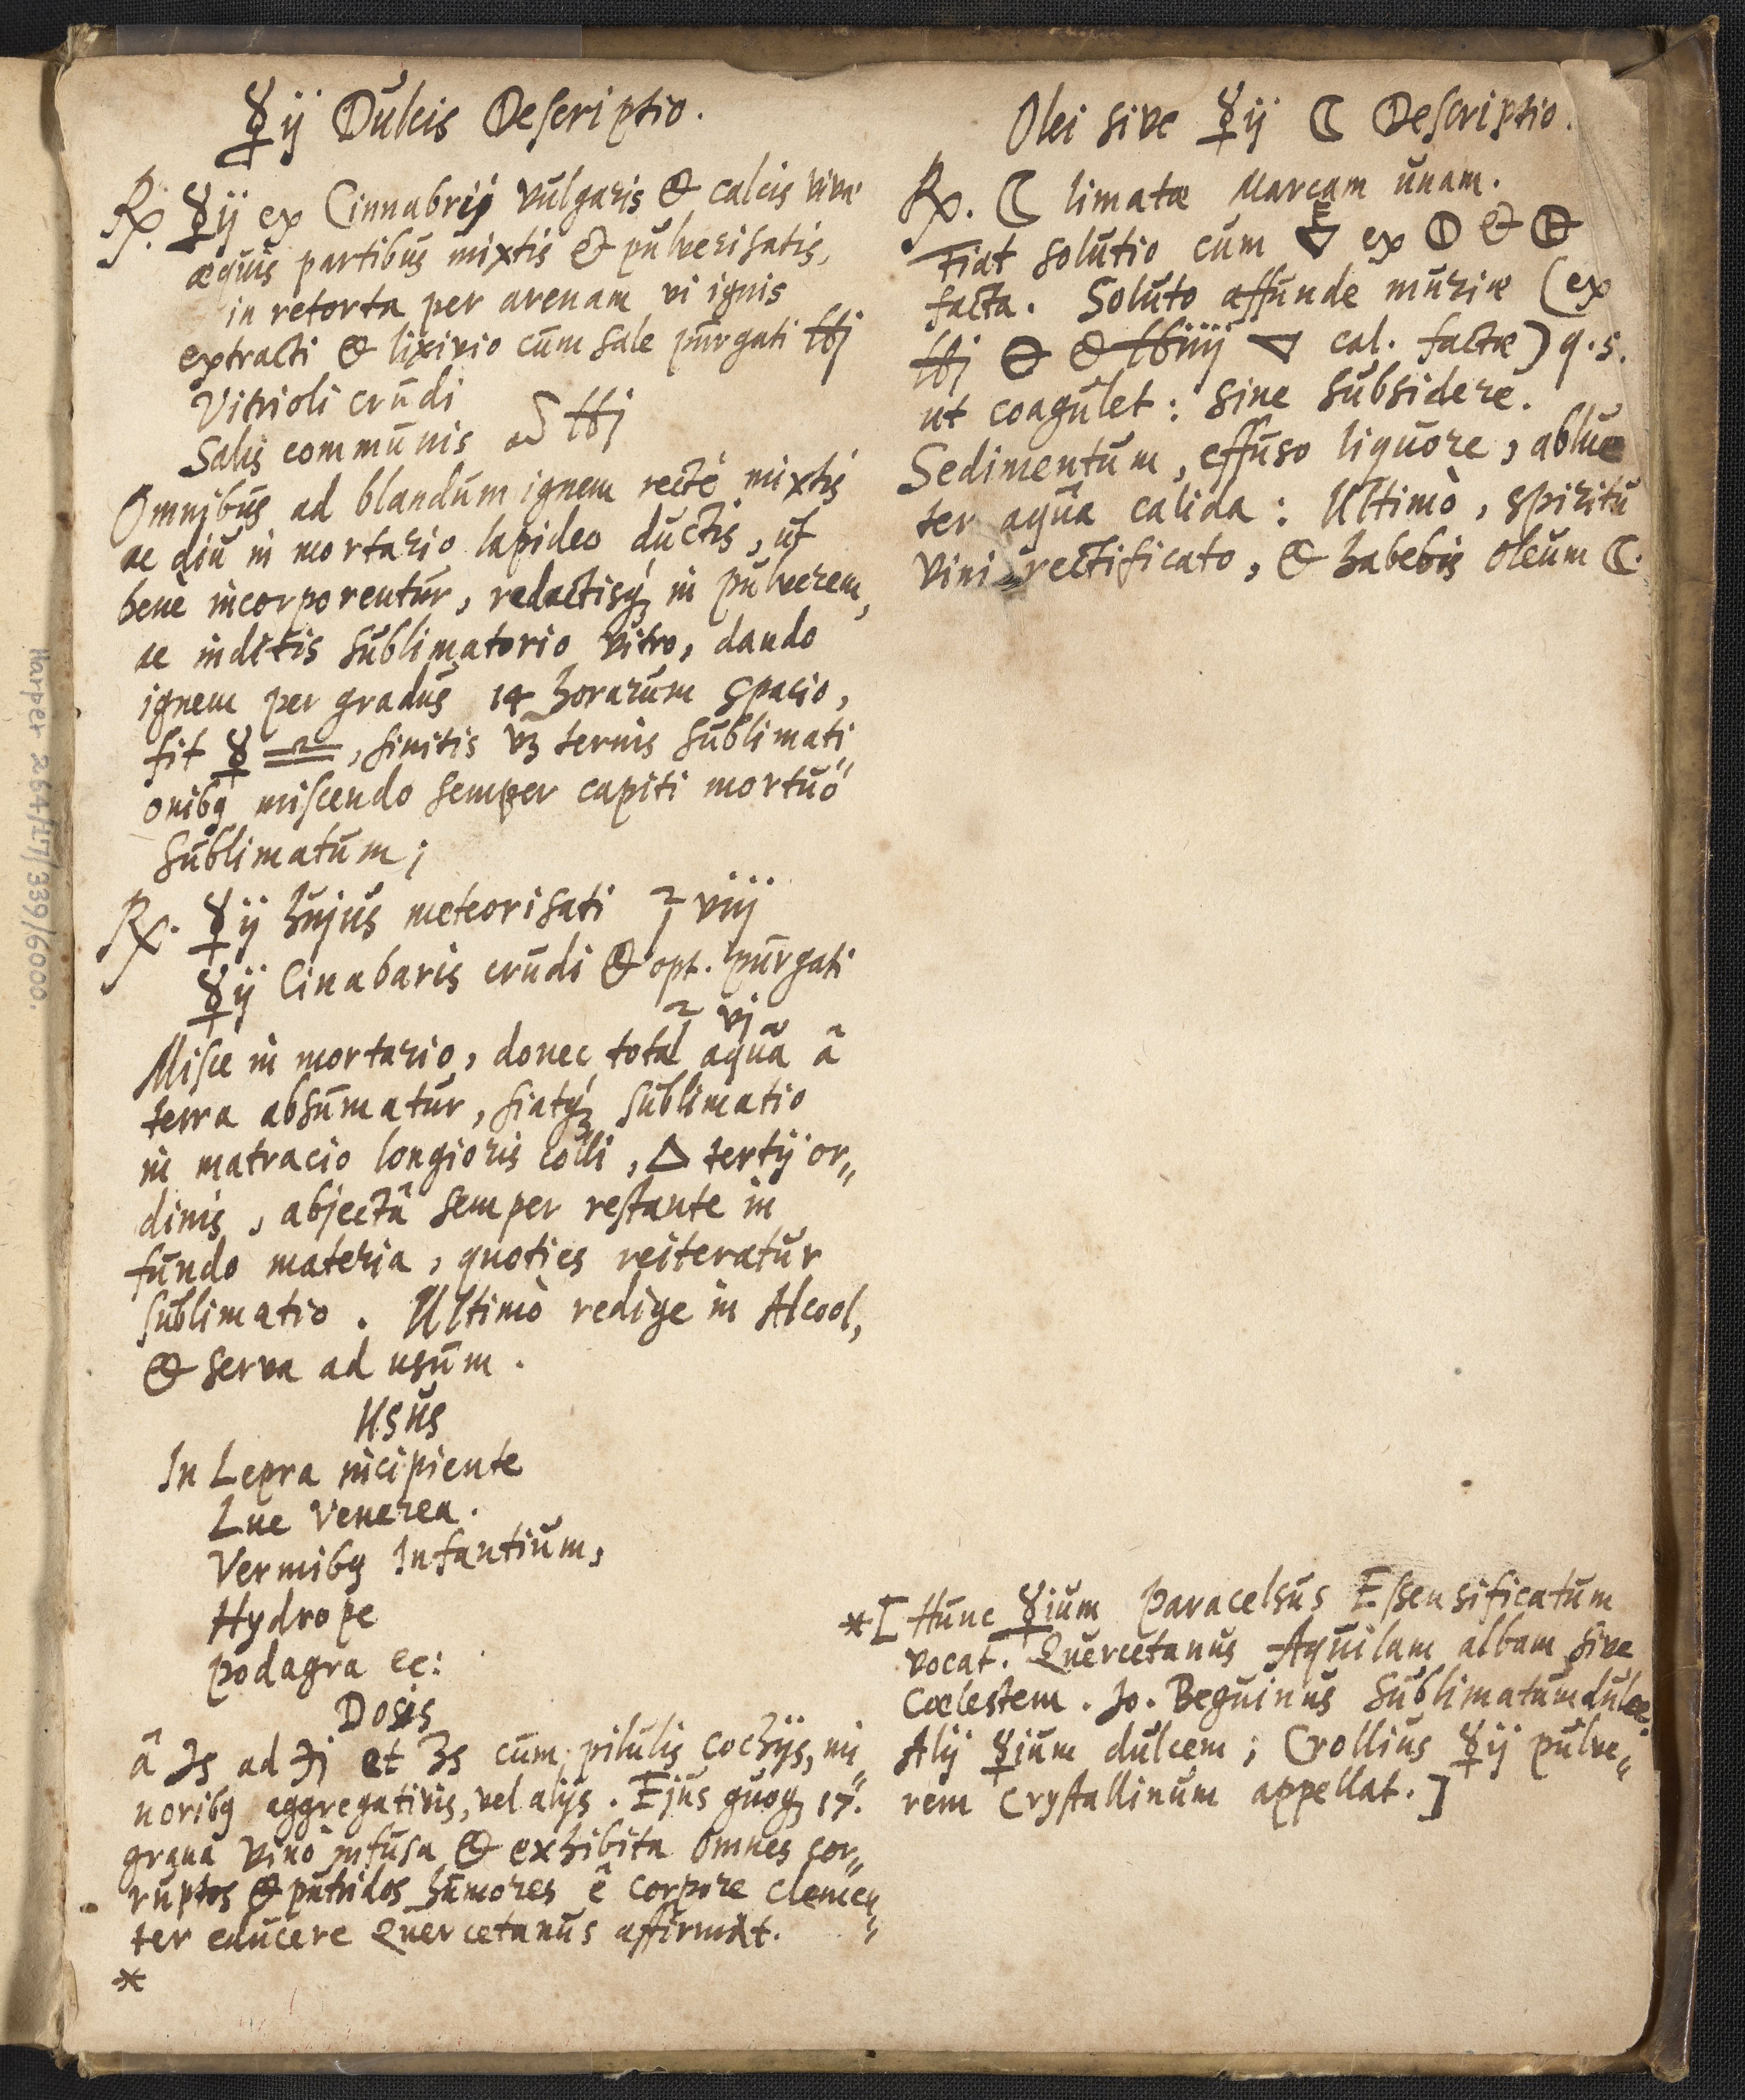 ☿ij Dulcis Descriptio.
℞. ☿ij ex Cinnabrij vulgaris & calcis vivæ
æquis partibus mixtis & pulverisatis,
in retorta per arenam vi ignis
extracti & lixivio cum sale purgati ℔j
Vitrioli crudi
Salis communis aā ℔j
Omnibus ad blandum ignem rectè mixtis
ac diu in mortario lapideo ductis, ut
benè incorporentur, redactisq́ꝫ in pulverem,
ac inditis sublimatorio vitro, dando
ignem per gradus 14 horarum spacio,
fit ☿ ♎︎, finitis vꝫ ternis sublimati„
onibꝰ miscendo semper capiti mortuo
sublimatum;
℞. ☿ij hujus meteorisati ℥ viij
☿ij Cinabaris crudi & opt. purgati
℥ vj
Misce in mortario, donec total aquã â
terra absumatur, fiatq́ꝫ sublimatio
in matracio longioris colli, △ tertij or„
dinis, abjectâ semper restante in
fundo materia, quoties reiteratur
sublimatio. Ultimò redige in Alcool,
& serva ad usum.
Usus
In Lepra incipiente
Lue Venerea.
Vermibꝰ Infantium,
Hydrope
podagra &c:
Dosis
â ℈s ad ℈j et ʒs cum pilulis cochijs, mi„
noribꝰ aggregativis, vel alijs. Ejus quoqꝫ 17.
grana vino infusa & exhibita omnes cor„
ruptos & putridos humores ê corpore clemen„
ter educere Quercetanus affirmat.
*
Olei sive ☿ij ☾ Descriptio.
℞. ☾ limatæ Marcam unam.
Fiat solutio cum 🜅 ex 🜕 & 🜖
facta. Soluto affunde muriæ (ex
℔j 🜔 & ℔iiij ▽ cal. factæ) q.s.
ut coagulet: sine subsidere.
Sedimentum, effuso liquore, ablue
ter aquâ calida: Ultimò, spiritu
vini rectificato, & habebis oleum ☾.
*[Hunc ☿ium Paracelsus Essensificatum
vocat. Quercetanus Aquilam albam sive
Cœlestem. Jo. Beguinus Sublimatum dulce.
Alij ☿ium dulcem; Crollius ☿ij pulve„
rem Crystallinum appellat.]
Harper 264/17/339/6000.